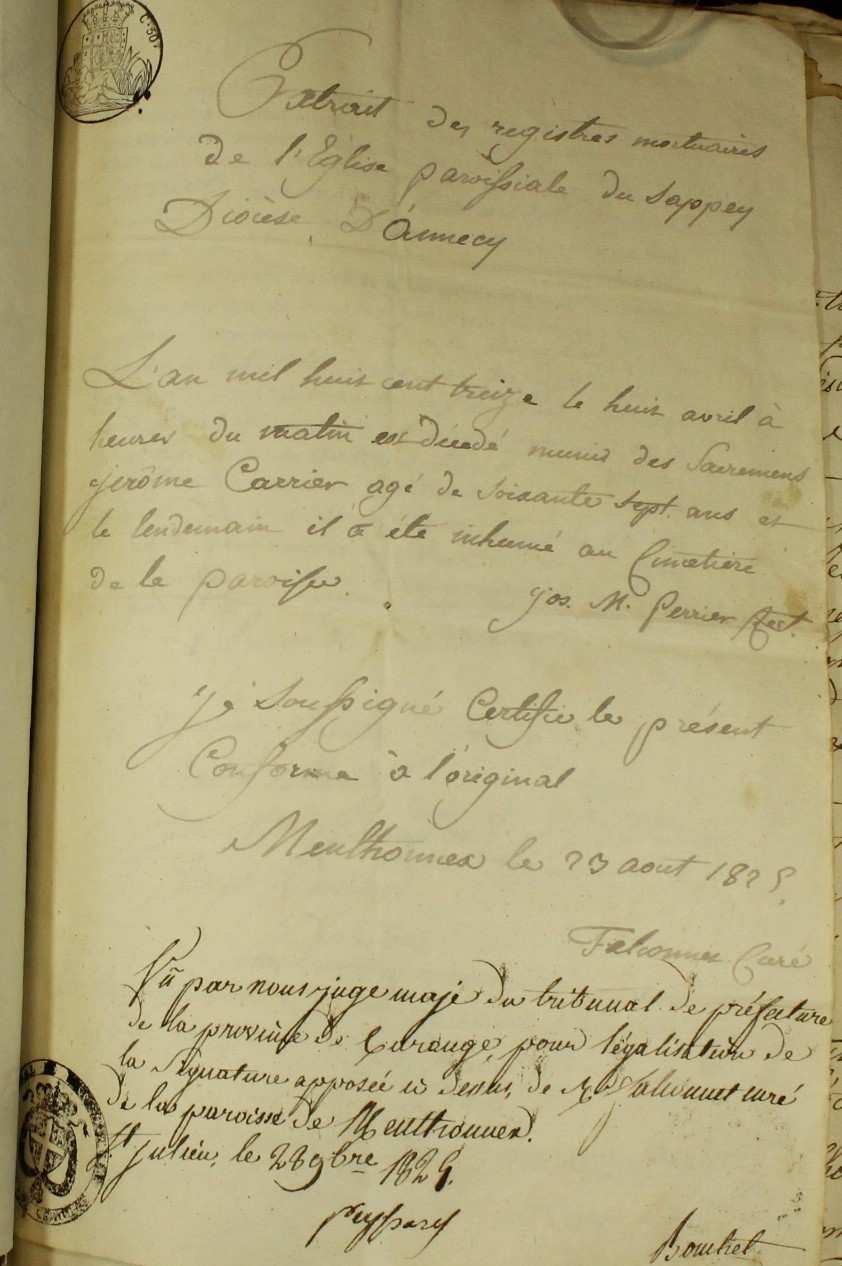 C. 50
Extrait des registres mortuaires
de l'Eglise paroissiale du Sappey
Diocèse D'Annecy
L'an mil huit cent treize le huit avril à
heures du matin est décédé munis des Sacremens
jerôme Carrier agé de soixante sept ans et
le lendemain il a été inhumé au Cimetière
de la paroisse.
jos. M. Perrier Rect.
je soussigné Certifie le présent
Conforme à l'original
Menthonnex le 23 aout 1825
Curé
Vu par nous juge maje du tribunal de préfecture
de la province de Carouge, pour légalisation de
la signature apposée ci dessus, de curé
de la paroisse de Menthonnex.
St julien, le 28 9bre 1825.